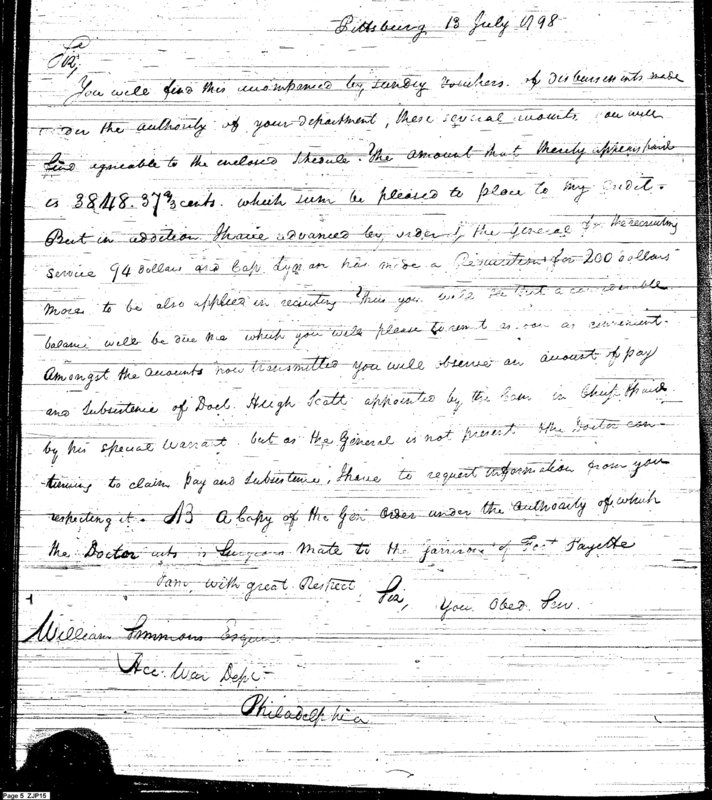 Pittsburg 13 July 1798
Sir,
You will find this accompanied by sundry vouchers of disbursements made
under the authority of your department, these several amounts you will
find agreeable to the inclosed Schedule. The amount that thereby appears paid
is 3848.37 cents. which sum be pleased to place to my credit.
But in addition I have advanced by order of the General for the recruiting
service 94 dollars and Cap. Lyman has made a Requisition for 200 dollars
more to be also applied in recruiting Thus you will see that a considerable
balance will be due me which you will please to remit as soon as convenient.
Amongst the accounts now transmitted you will observe an account of pay
and Subsistence of Doct. Hugh Scott appointed by the Com in Chief & paid
by his special warrant but as the General is not present & the Doctor con-
tinuing to claim pay and subsistence, I have to request information from you
respecting it. NB A Copy of the Gen Order under the authority of which
the Doctor acts is Surgeons Mate to the Garrison of Fort Fayette
I am, with great Respect
Sir,
You Obed. Ser.
William Simmons Esquire
Acc. War Dept
Philadelphia
Page 5 ZJP15